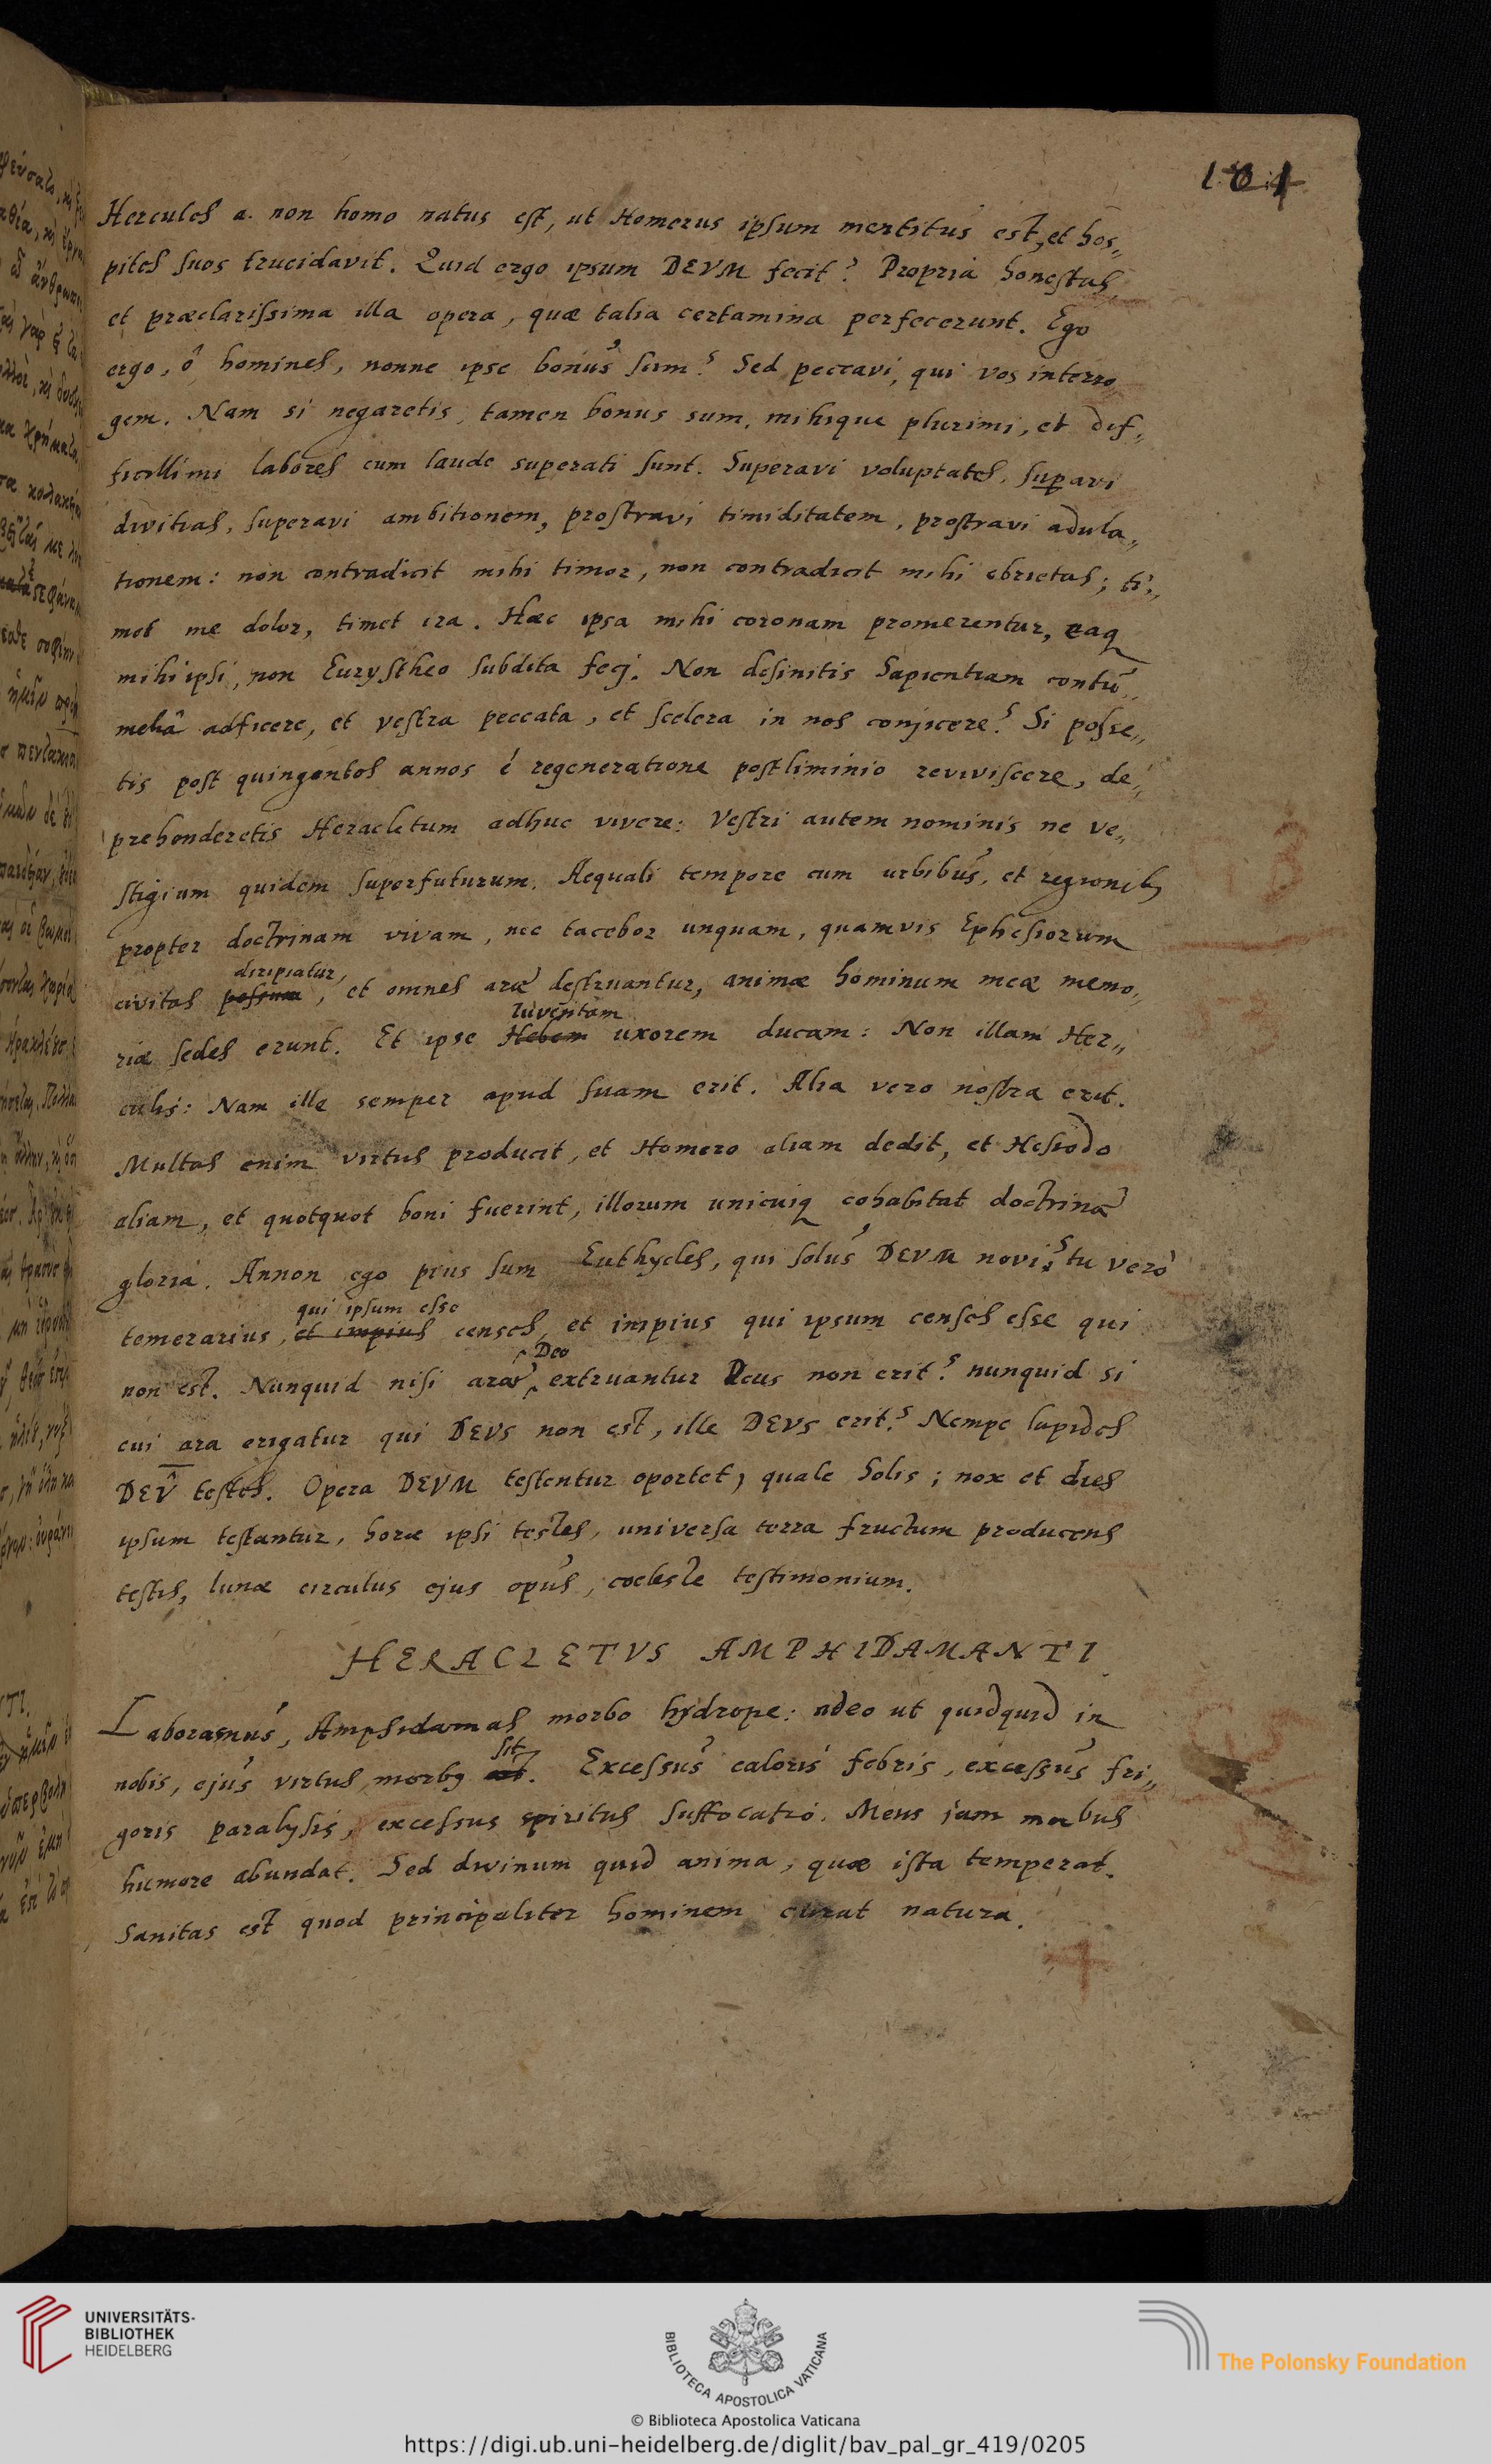 101
Hercules a. non homo natus est, ut Homerus ipsum mentitus est, et hos„
pites suos trucidavit. Quid ergo ipsum DEVM fecit? Propria honestas,
et præclarissima illa opera, quæ talia certamina perfecerunt. Ego
ergo, ô homines, nonne ipse bonus sum? Sed peccavi, qui vos interro„
gem. Nam si negaretis, tamen bonus sum, mihique plurimi, et dif„
ficillimi labores cum laude superati sunt. Superavi voluptates, supavi
divitias, superavi ambitionem, prostravi timiditatem, prostravi adula„
tionem: non contradicit mihi timor, non contradicit mihi ebrietas; ti„
met me dolor, timet ira. Hæc ipsa mihi coronam promerentur, eaq
mihi ipsi, non Eurystheo subdita feci. Non desinitis Sapientiam contu„
meliâ adficere, et vestra peccata, et scelera in nos conjicere? Si posse„
tis post quingentos annos é regeneratione postliminio reviviscere, de„
prehenderetis Heracletum adhuc vivere: Vestri autem nominis ne ve„
stigium quidem superfuturum. Aequali tempore cum urbibus, et regionibus
propter doctrinam vivam, nec tacebor unquam, quamvis Ephesiorum
diripiatur,
civitas , et omnes aræ destruantur, animæ hominum meæ memo„
Iuventam
riæ sedes erunt. Et ipse Hebem uxorem ducam: Non illam Her„
culis: Nam ille semper apud suam erit. Alia vero nostra erit.
Multas enim virtus producit, et Homero aliam dedit, et Hesiodo
aliam, et quotquot boni fuerint, illorum unicuiq cohabitat doctrinæ
gloria. Annon ego pius sum Euthycles, qui solus DEVM novi? tu verò
qui ipsum esse
temerarius, et impius censes, et impius qui ipsum censes esse qui
Deo
non est. Nunquid nisi aræ extruantur Deus non erit? nunquid si
cui ara erigatur qui DEVS non est, ille DEVS erit? Nempe lapides
DEV̂ testes. Opera DEVM testentur oportet, quale Solis; nox et dies
ipsum testantur, horæ ipsi testes, universa terra fructum producens
testis, lunæ circulus ejus opus, coeleste testimonium.
HERACLETVS AMPHIDAMANTI.
Laboramus, Amphidamas morbo hydrope: adeo ut quidquid in
sit
nobis, ejus virtus, morbus . Excessus caloris febris, excessus fri„
goris paralysis, excessus spiritus suffocatio. Meus jam morbus
humore abundat. Sed divinum quid anima, quæ ista temperat.
Sanitas est quod principaliter hominem curat natura.
UNIVERSITÄTS-
BIBLIOTHEK
HEIDELBERG
BIBLIOTECA APOSTOLICA VATICANA
The Polonsky Foundation
© Biblioteca Apostolica Vaticana
https://digi.ub.uni-heidelberg.de/diglit/bav_pal_gr_419/0205